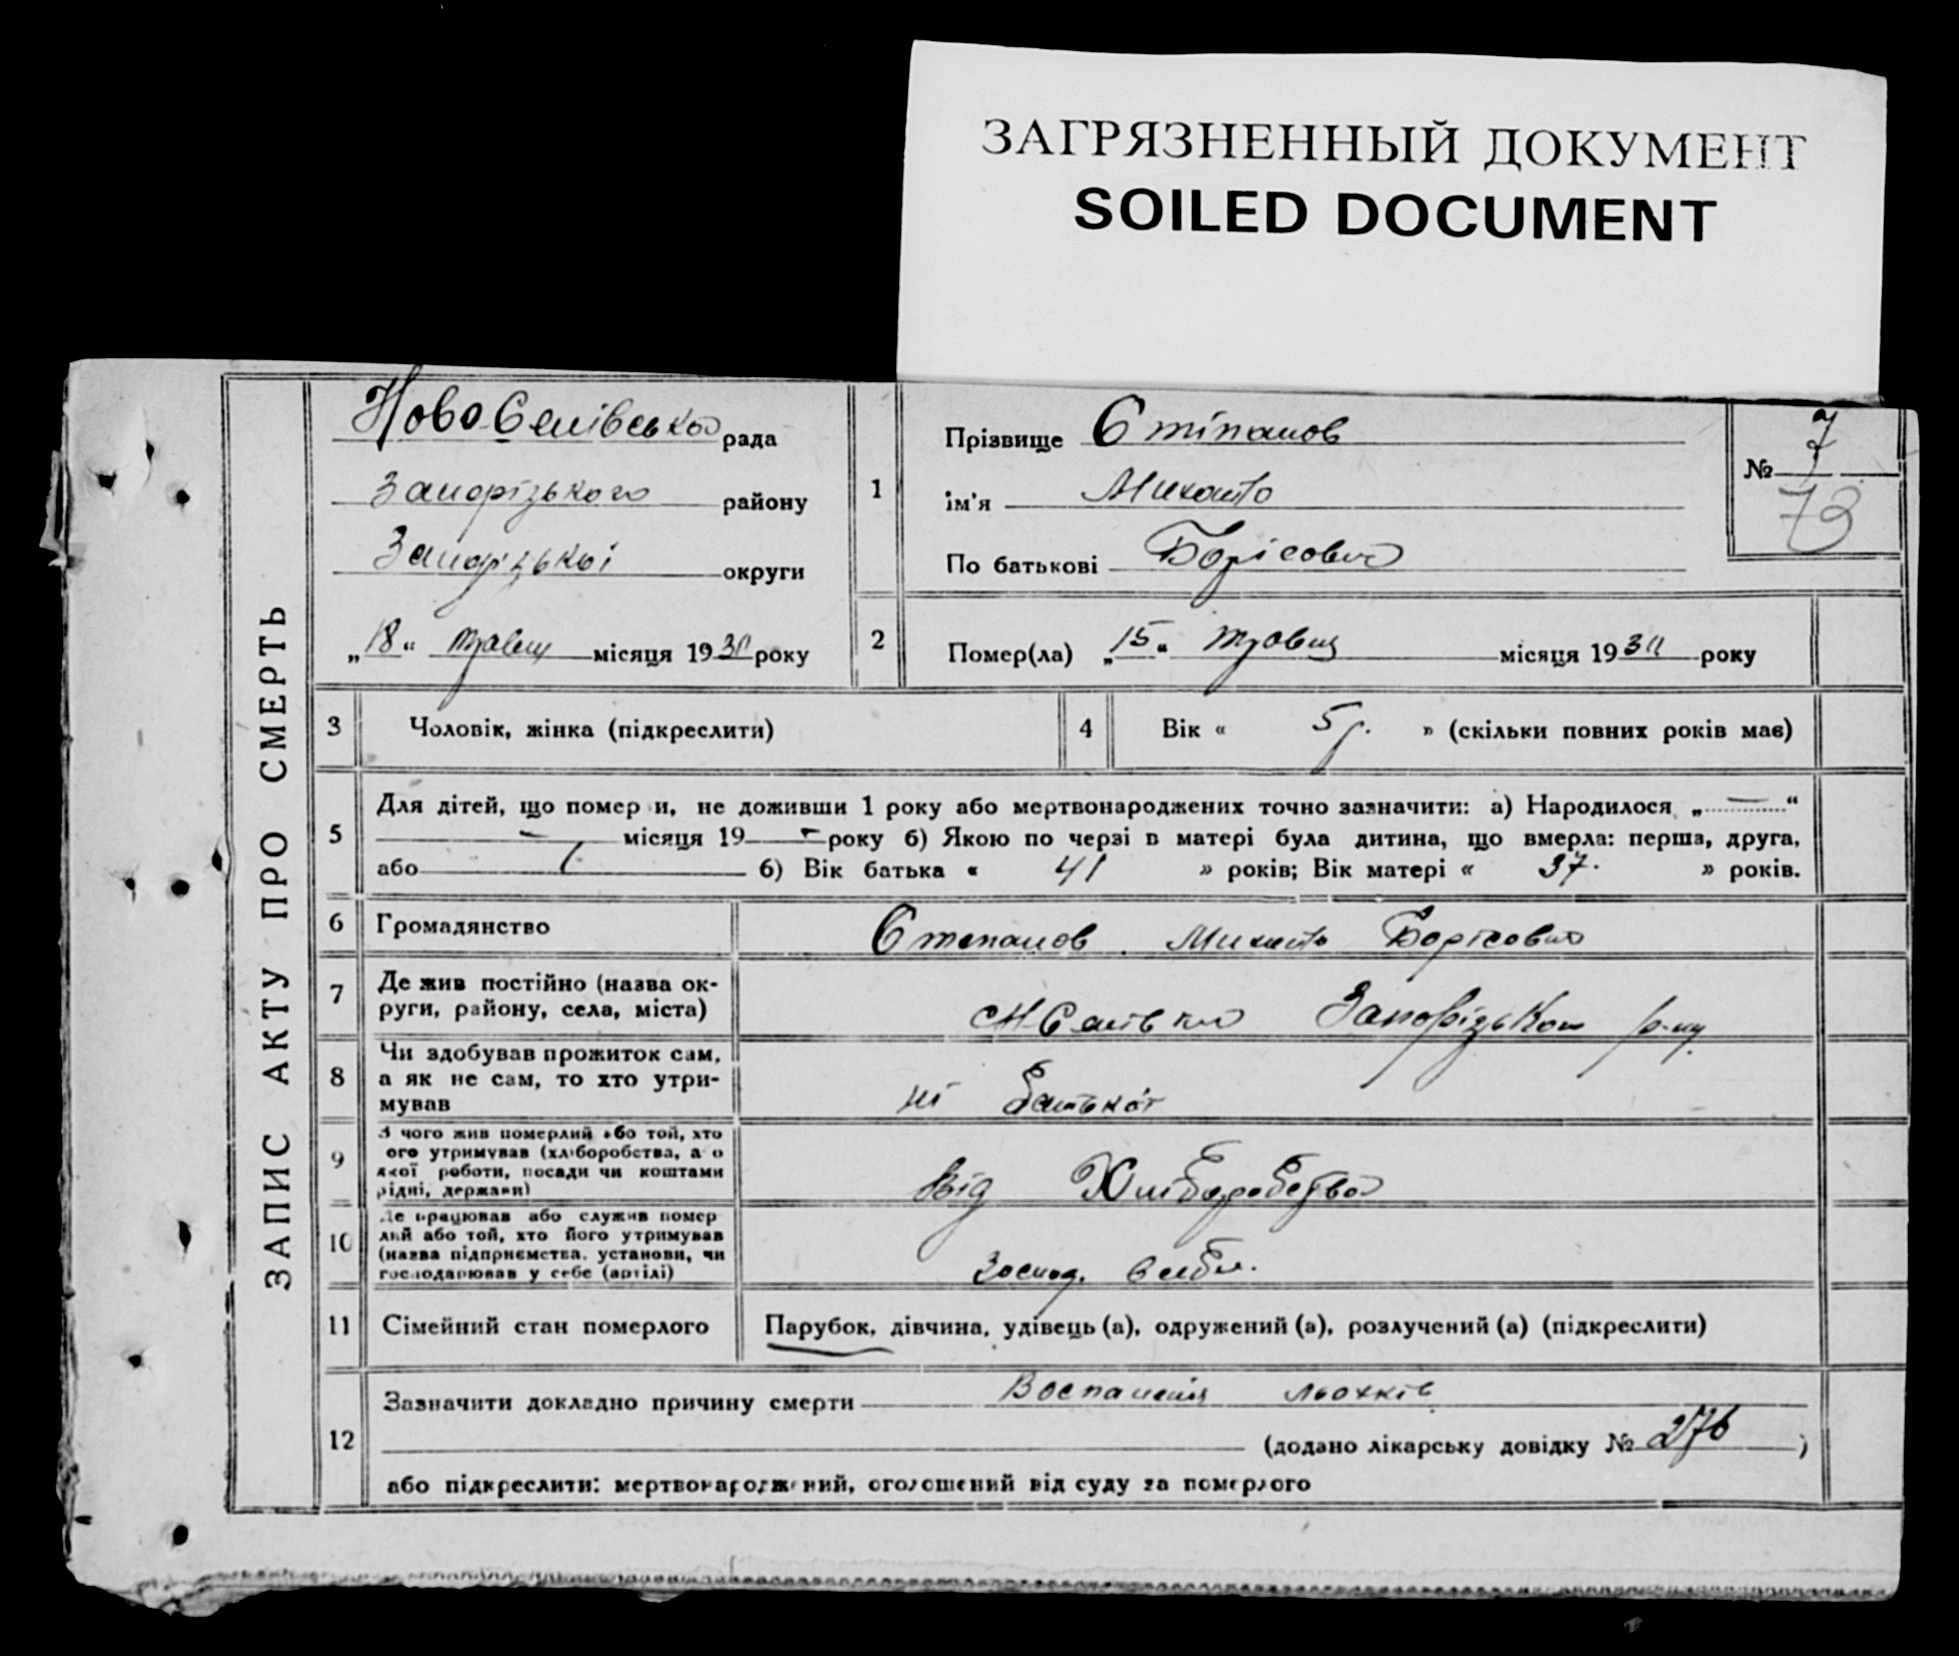 ЗАГРЯЗНЕННЫЙ ДОКУМЕНТ
SOILED DOCUMENT
ЗАПИС АКТУ ПРО СМЕРТЬ
Ново Селівська рада
Запорізького району
Запорізької округи
„18“ травня місяця 1930 року
1
Прізвище Стіпанов
ім'я Михайло
По батькові Борісович
№ 7
73
2
Помер(ла) „15“ травня місяця 1930 року
3
Чоловік, жінка (підкреслити)
4
Вік « 5 р. » (скільки повних років має)
5
Для дітей, що помер и, не доживши 1 року або мертвонароджених точно зазначити: а) Народилося „ — “
— місяця 19 — року б) Якою по черзі в матері була дитина, що вмерла: перша, друга,
або б) Вік батька « 41 » років; Вік матері « 37. » років.
6
Громадянство Степанов Михайло Борісович
7
Де жив постійно (назва ок-
руги, району, села, міста)
Запорізького р-ну
8
Чи здобував прожиток сам,
а як не сам, то хто утри-
мував
ні
9
З чого жив померлий або той, хто
ого утримував (хліборобства, а о
якої роботи, посади чи коштами
рідні, держави)
від Хліборобства
10
Де працював або служив помер
лий або той, хто його утримував
(назва підприємства, установи, чи
господарював у себе (артілі)
11
Сімейний стан померлого
Парубок, дівчина, удівець (а), одружений (а), розлучений (а) (підкреслити)
12
Зазначити докладно причину смерти Воспаленія льохків
(додано лікарську довідку № 276 )
або підкреслити: мертвонароджений, оголошений від суду за померлого